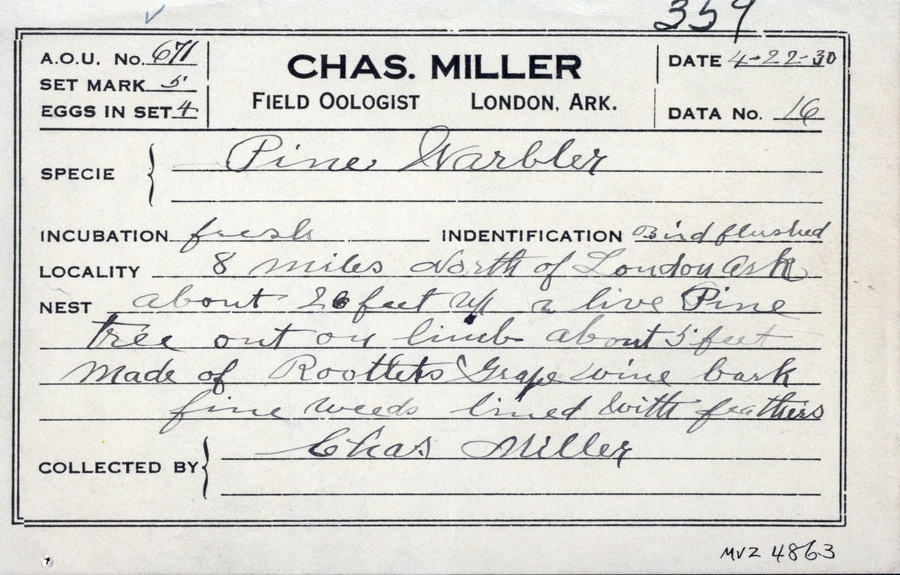 359
A.O.U. No. 671
SET MARK 5
EGGS IN SET 4
CHAS. MILLER
FIELD OOLOGIST LONDON, ARK.
DATE 4-22-30
DATA No. 16
SPECIE { Pine Warbler
INCUBATION fresh INDENTIFICATION Bird flushed
LOCALITY 8 miles North of London Ark
NEST about 26 feet up a live Pine
tree out on limb about 5 feet
Made of Rootlets Grape vine bark
fine weeds lined with feathers
COLLECTED BY { Chas Miller
MVZ 4863